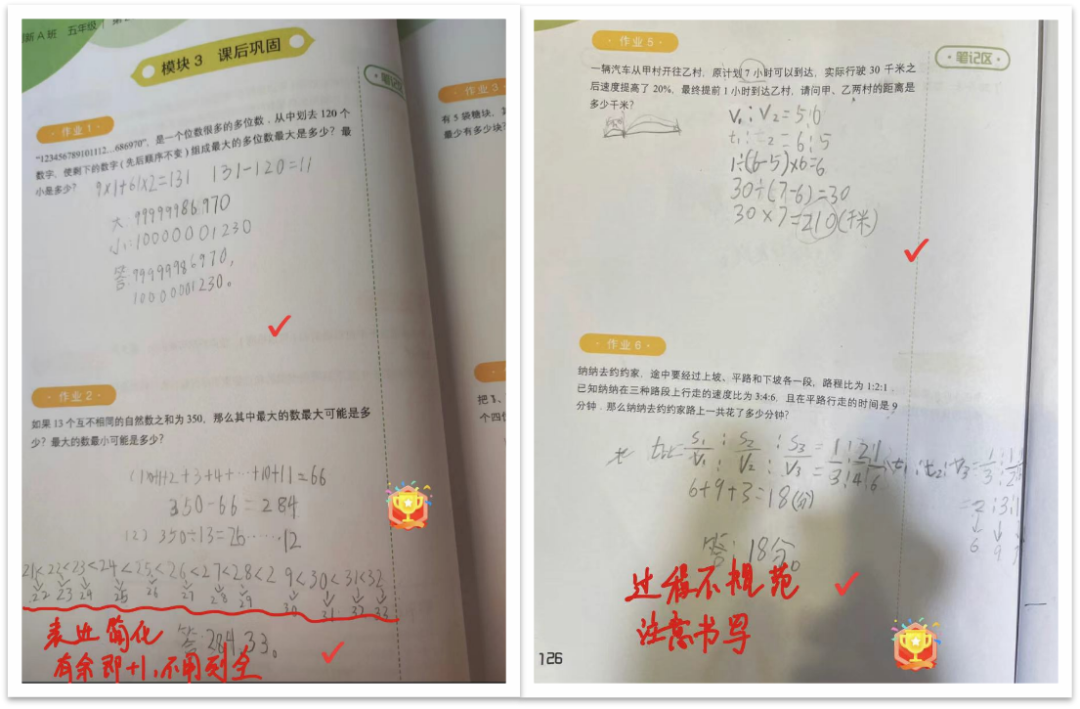 新A班 五年级
模块3 课后巩固
笔记区
作业1
“123456789101112…686970”，是一个位数很多的多位数，从中划去120个
数字，使剩下的数字(先后顺序不变)组成最大的多位数最大是多少？最
小是多少？
9×1+61×2=131 131-120=11
大:99999986970
小:10000001230
答:99999986970,
10000001230。
作业2
如果13个互不相同的自然数之和为350，那么其中最大的数最大可能是多
少？最大的数最小可能是多少？
+2+3+4+…+10+11=66
350-66=284
(2) 350÷13=26……12
21<22<23<24<25<26<27<28<29<30<31<32
22 23 24 25 26 27 28 29 30 31 32 33
答:284,33。
表达简化
有余即+1,不用列全
作业3
有5袋糖块，
最少有多少块
把1、
个四位
作业5
笔记区
一辆汽车从甲村开往乙村，原计划7小时可以到达，实际行驶30千米之
后速度提高了20%，最终提前1小时到达乙村，请问甲、乙两村的距离是
多少千米？
V₁:V₂=5:6
=6:5
1÷(6-5)×6=6
30÷(7-6)=30
30×7=210(千米)
作业6
纳纳去约约家，途中要经过上坡、平路和下坡各一段，路程比为1:2:1，
已知纳纳在三种路段上行走的速度比为3:4:6，且在平路行走的时间是9
分钟，那么纳纳去约约家路上一共花了多少分钟？
S₁/V₁:S₂/V₂:S₃/V₃=1/3:2/4:1/6
=2:3:1
6 9
6+9+3=18(分)
答:18分。
过程不规范
注意书写
126